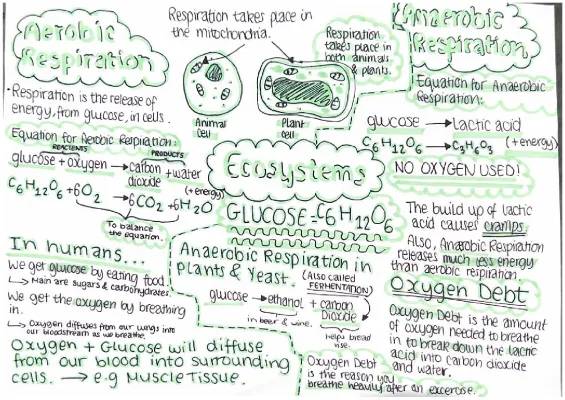 Aerobic
Respiration
Respiration takes place in
the mitochondria.
Respiration
takes place in
both animals
& plants.
Animal
cell
Plant
cell
• Respiration is the release of
energy, from glucose, in cells.
Equation for Aerobic Respiration:
REACTANTS
PRODUCTS
glucose + oxygen → carbon + water
dioxide
(+ energy)
C6H12O6 + 6O2 → 6CO2 + 6H2O
To balance
the equation.
In humans...
We get glucose by eating food.
↳ Main are sugars & carbohydrates.
We get the oxygen by breathing
in.
↳ Oxygen diffuses from our lungs into
our bloodstream as we breathe.
Oxygen + Glucose will diffuse
from our blood into surrounding
cells. → e.g Muscle Tissue.
Ecosystems
GLUCOSE = C6H12O6
Anaerobic Respiration in
Plants & Yeast.
(Also called
FERMENTATION)
glucose → ethanol + carbon
Dioxide
in beer & wine.
helps bread
rise.
Oxygen Debt
is the reason you
breathe heavily after an excercise.
Anaerobic
Respiration
Equation for Anaerobic
Respiration:
glucose → Lactic acid
(+ energy)
C6H12O6 → C3H6O3
NO OXYGEN USED!
The build up of lactic
acid causes cramps.
Also, Anaerobic Respiration
releases much less energy
than aerobic respiration
Oxygen Debt
Oxygen Debt is the amount
of oxygen needed to breathe
in to break down the lactic
acid into carbon dioxide
and water.